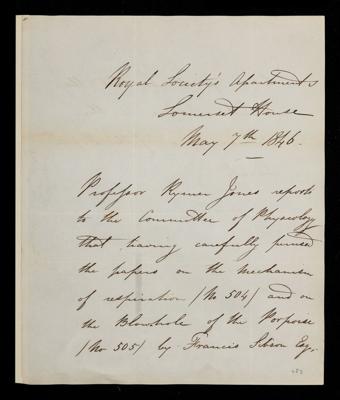 Royal Society's Apartments
Somerset House
May 7th 1846.
Professor Rymer Jones reports
to the Committee of Physiology
that having carefully perused
the papers on the mechanism
of respiration /No 504/ and on
the Blowhole of the Porpoise
/No 505/ by Francis Sibson Esq.